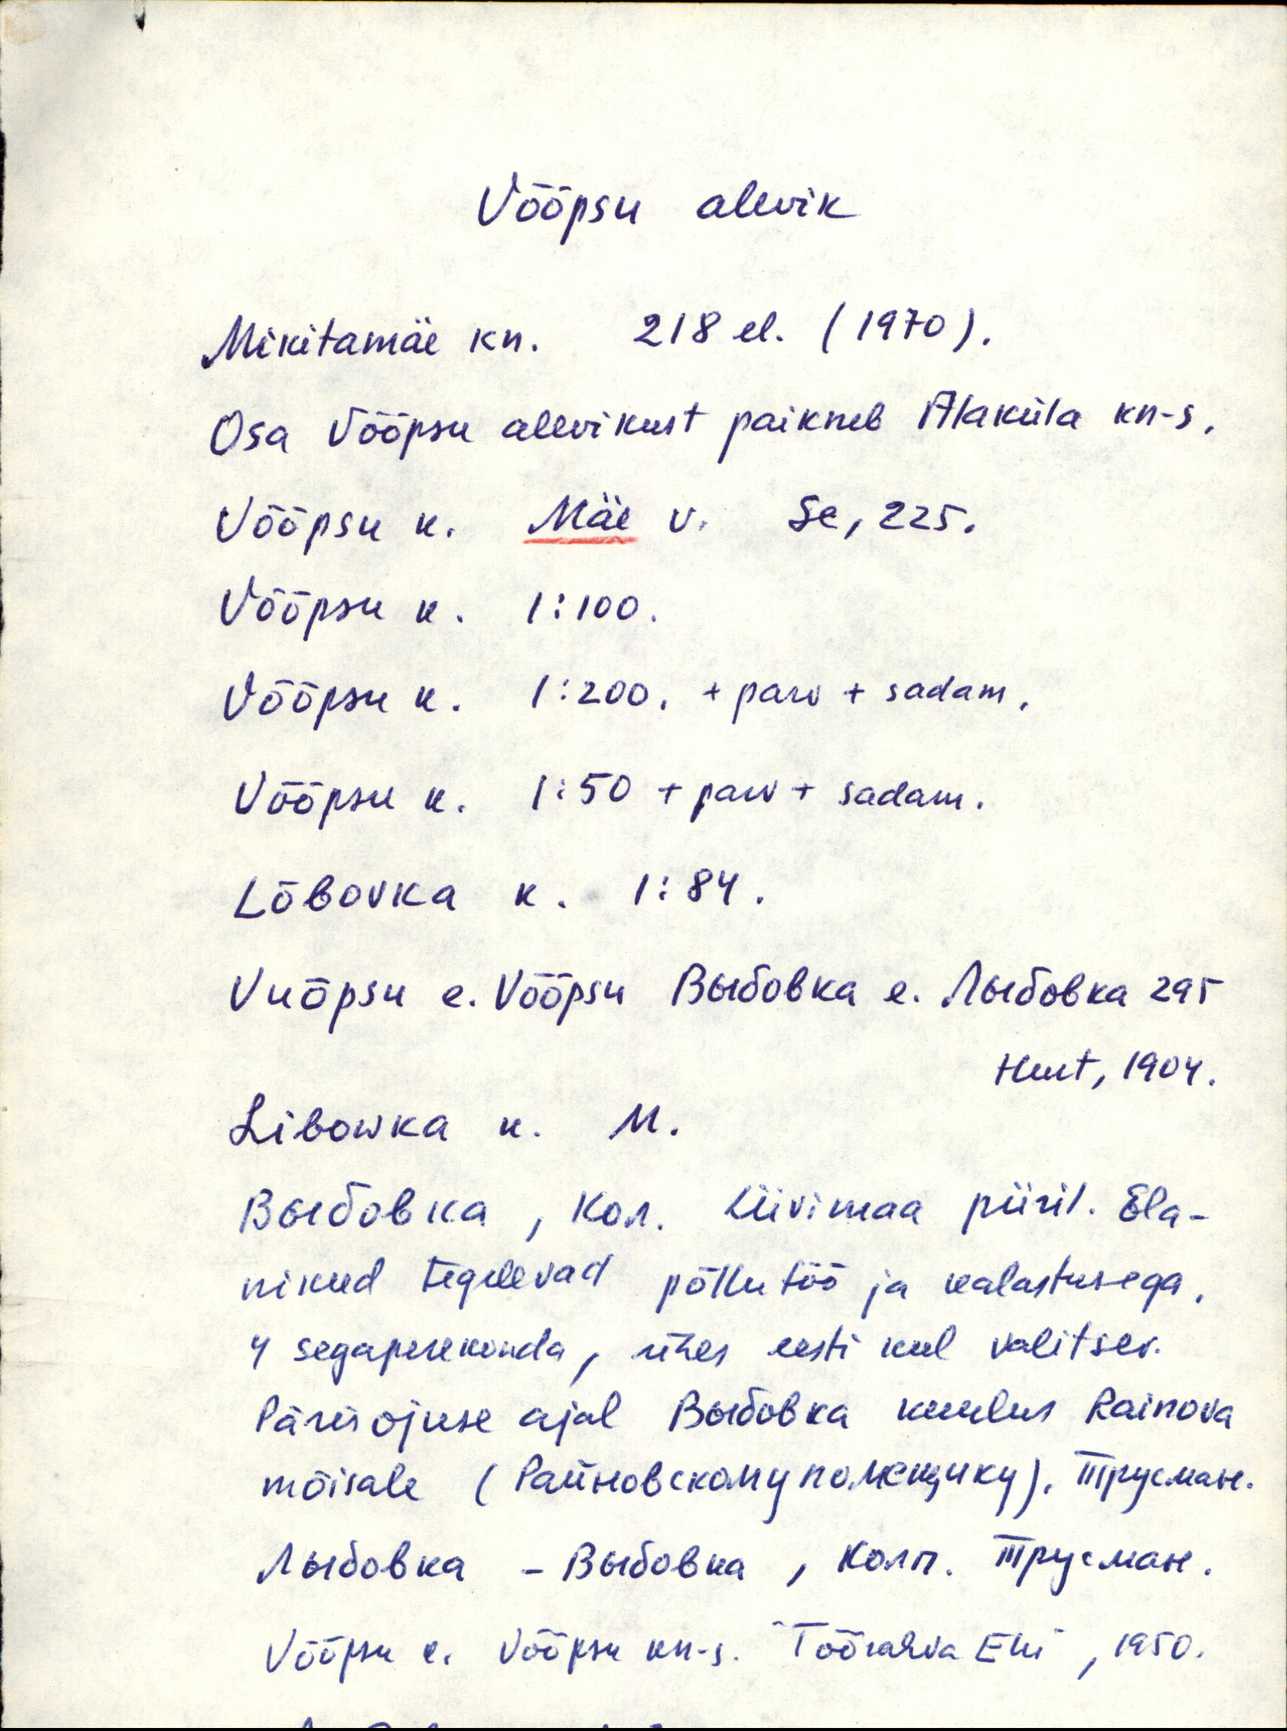 Vööpsu alevik
Mikitamäe kn. 218 el. (1970).
Osa Vööpsu alevikust paikneb Alaküla kn-s.
Vööpsu k. Mäe v. Se, 225.
Vööpsu k. 1:100.
Vööpsu k. 1:200. + parv + sadam.
Vööpsu k. 1:50 + parv + sadam.
Lõbovka k. 1:84.
Vuõpsu e. Võõpsu Выбовка e. Лыбовка 295
Hurt, 1904.
Libowka k. M.
Выбовка, Кол. Liivimaa piiril. Ela-
nikud tegelevad põllutöö ja kalastusega.
4 segaperekonda, ühes eesti keel valitsev.
Pärisorjuse ajal Выбовка kuulus Rainova
mõisale (Райновскому помещику). Трусман.
Лыбовка - Выбовка, Колп. Трусман.
Vööpsu k. Vööpsu kn-s. "Töörahva Elu", 1950.